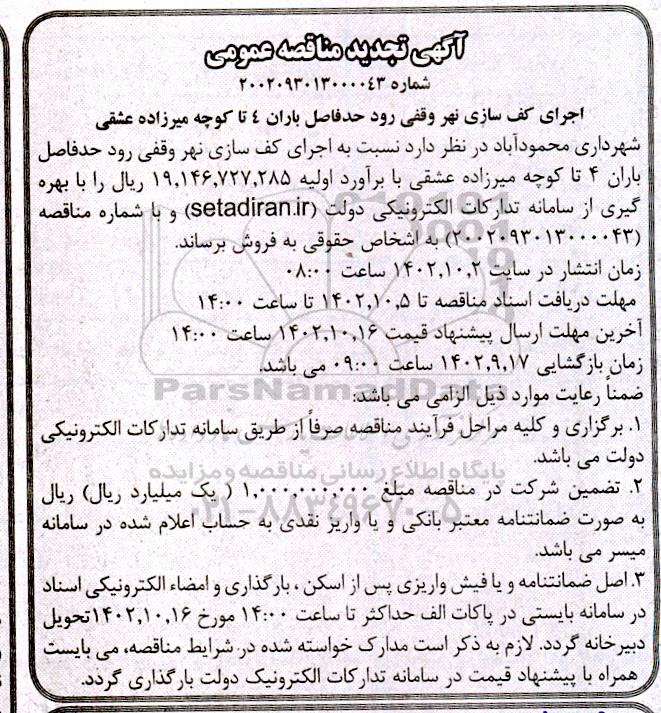 آگهی تجدید مناقصه عمومی
شماره ۲۰۰۲۰۹۳۰۱۳۰۰۰۰۴۳
اجرای کف سازی نهر وقفی رود حدفاصل باران ٤ تا کوچه میرزاده عشقی
شهرداری محمودآباد در نظر دارد نسبت به اجرای کف سازی نهر وقفی رود حدفاصل
باران ۴ تا کوچه میرزاده عشقی با برآورد اولیه ۱۹,۱۴۶,۷۲۷,۲۸۵ ریال را با بهره
گیری از سامانه تدارکات الکترونیکی دولت (setadiran.ir) و با شماره مناقصه
(۲۰۰۲۰۹۳۰۱۳۰۰۰۰۴۳) به اشخاص حقوقی به فروش برساند.
زمان انتشار در سایت ۱۴۰۲,۱۰,۲ ساعت ۰۸:۰۰
مهلت دریافت اسناد مناقصه تا ۱۴۰۲,۱۰,۵ تا ساعت ۱۴:۰۰
آخرین مهلت ارسال پیشنهاد قیمت ۱۴۰۲,۱۰,۱۶ ساعت ۱۴:۰۰
زمان بازگشایی ۱۴۰۲,۹,۱۷ ساعت ۰۹:۰۰ می باشد.
ضمناً رعایت موارد ذیل الزامی می باشد:
ParsNamadData
۱. برگزاری و کلیه مراحل فرآیند مناقصه صرفاً از طریق سامانه تدارکات الکترونیکی
دولت می باشد.
پایگاه اطلاع رسانی مناقصه و مزایده
۲. تضمین شرکت در مناقصه مبلغ ۱,۰۰۰,۰۰۰,۰۰۰ ( یک میلیارد ریال) ریال
۰۲۱-۸۸۳۴۹۶۷۰-۵
به صورت ضمانتنامه معتبر بانکی و یا واریز نقدی به حساب اعلام شده در سامانه
میسر می باشد.
۳. اصل ضمانتنامه و یا فیش واریزی پس از اسکن ، بارگذاری و امضاء الکترونیکی اسناد
در سامانه بایستی در پاکات الف حداکثر تا ساعت ۱۴:۰۰ مورخ ۱۴۰۲,۱۰,۱۶تحویل
دبیرخانه گردد. لازم به ذکر است مدارک خواسته شده در شرایط مناقصه، می بایست
همراه با پیشنهاد قیمت در سامانه تدارکات الکترونیک دولت بارگذاری گردد.